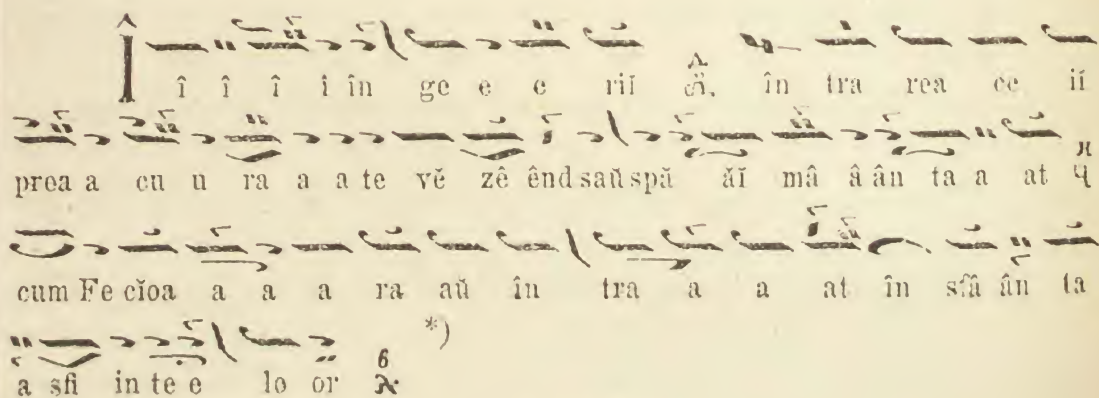 Î î î î î în ge e e riĭ în tra rea ce iĭ
prea a cu u ra a a te vĕ zê ênd saŭ spă ăĭ mâ â ân ta a at
cum Fe cĭoa a a a ra aŭ în tra a a at în sfâ ân ta
a sfi in te e lo or *)